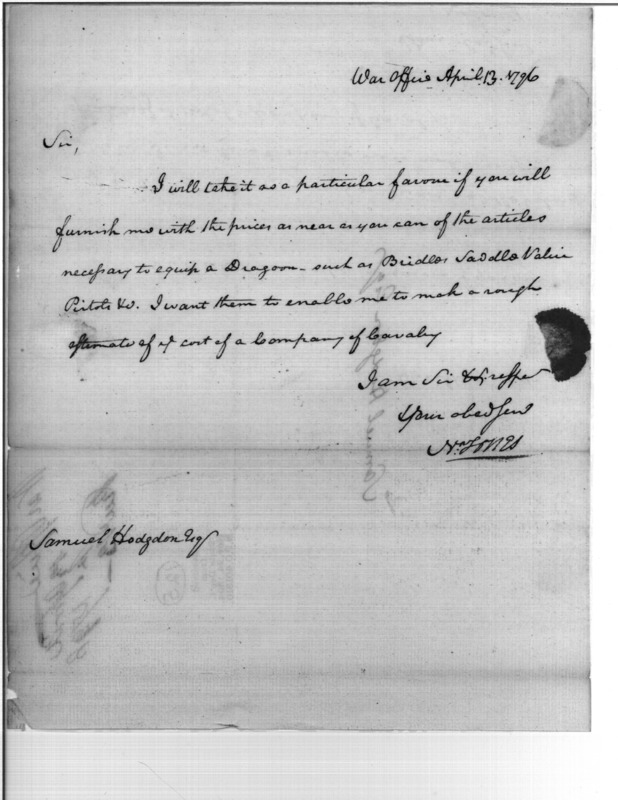 War Office April 13. 1796
Sir,
I will take it as a particular favour if you will
furnish me with the prices as near as you can of the articles
necessary to equip a Dragoon - such as Bridles Saddle Valise
Pistols &c. I want them to enable me to mak a rough
estimate of ye cost of a Company of Cavalry
I am Sir
your obed Servt
Nn Jones
Samuel Hodgdon Esq